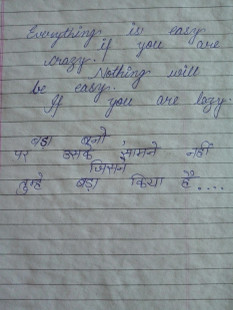 Everything is easy
if you are
crazy.
Nothing will
be easy.
If you are lazy.
बड़ा बनो ,
पर उसके सामने नहीं
जिसने
तुम्हे बड़ा किया है....